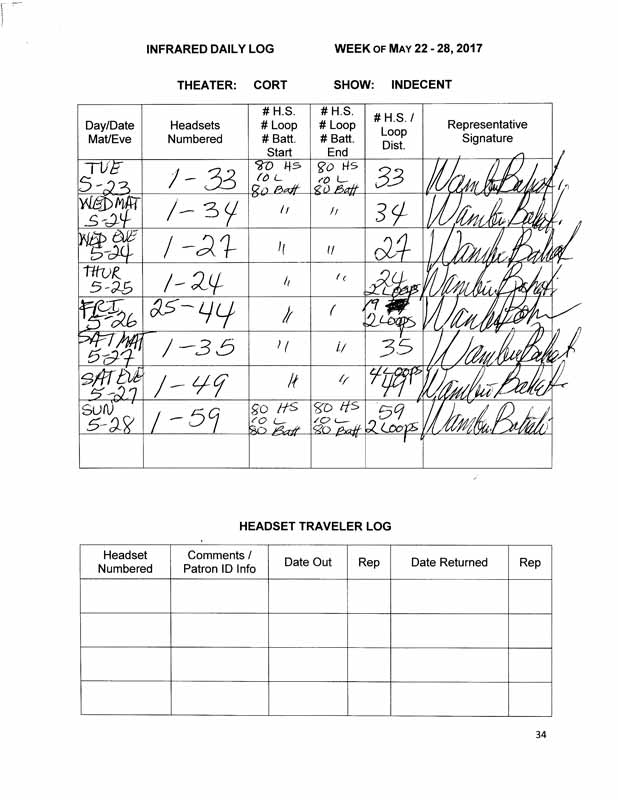 INFRARED DAILY LOG WEEK OF MAY 22 - 28, 2017
THEATER: CORT SHOW: INDECENT
Day/Date Mat/Eve Headsets Numbered # H.S. # Loop # Batt. Start # H.S. # Loop # Batt. End # H.S. / Loop Dist. Representative Signature
TUE 5-23 1-33 80 HS 10 L 80 Batt 80 HS 10 L 80 Batt 33 Wambui Bahati
WED MAT 5-24 1-34 " " 34 Wambui Bahati
WED EVE 5-24 1-27 " " 27 Wambui Bahati
THUR 5-25 1-24 " " 24 2 Loops Wambui Bahati
FRI 5-26 25-44 " " 19 2 Loops Wambui
SAT MAT 5-27 1-35 " " 35 Wambui Bahati
SAT EVE 5-27 1-49 " " 4 Loops 49 Wambui Bahati
SUN 5-28 1-59 80 HS 10 L 80 Batt 80 HS 10 L 80 Batt 59 2 Loops Wambui Bahati
HEADSET TRAVELER LOG
Headset Numbered Comments / Patron ID Info Date Out Rep Date Returned Rep
34